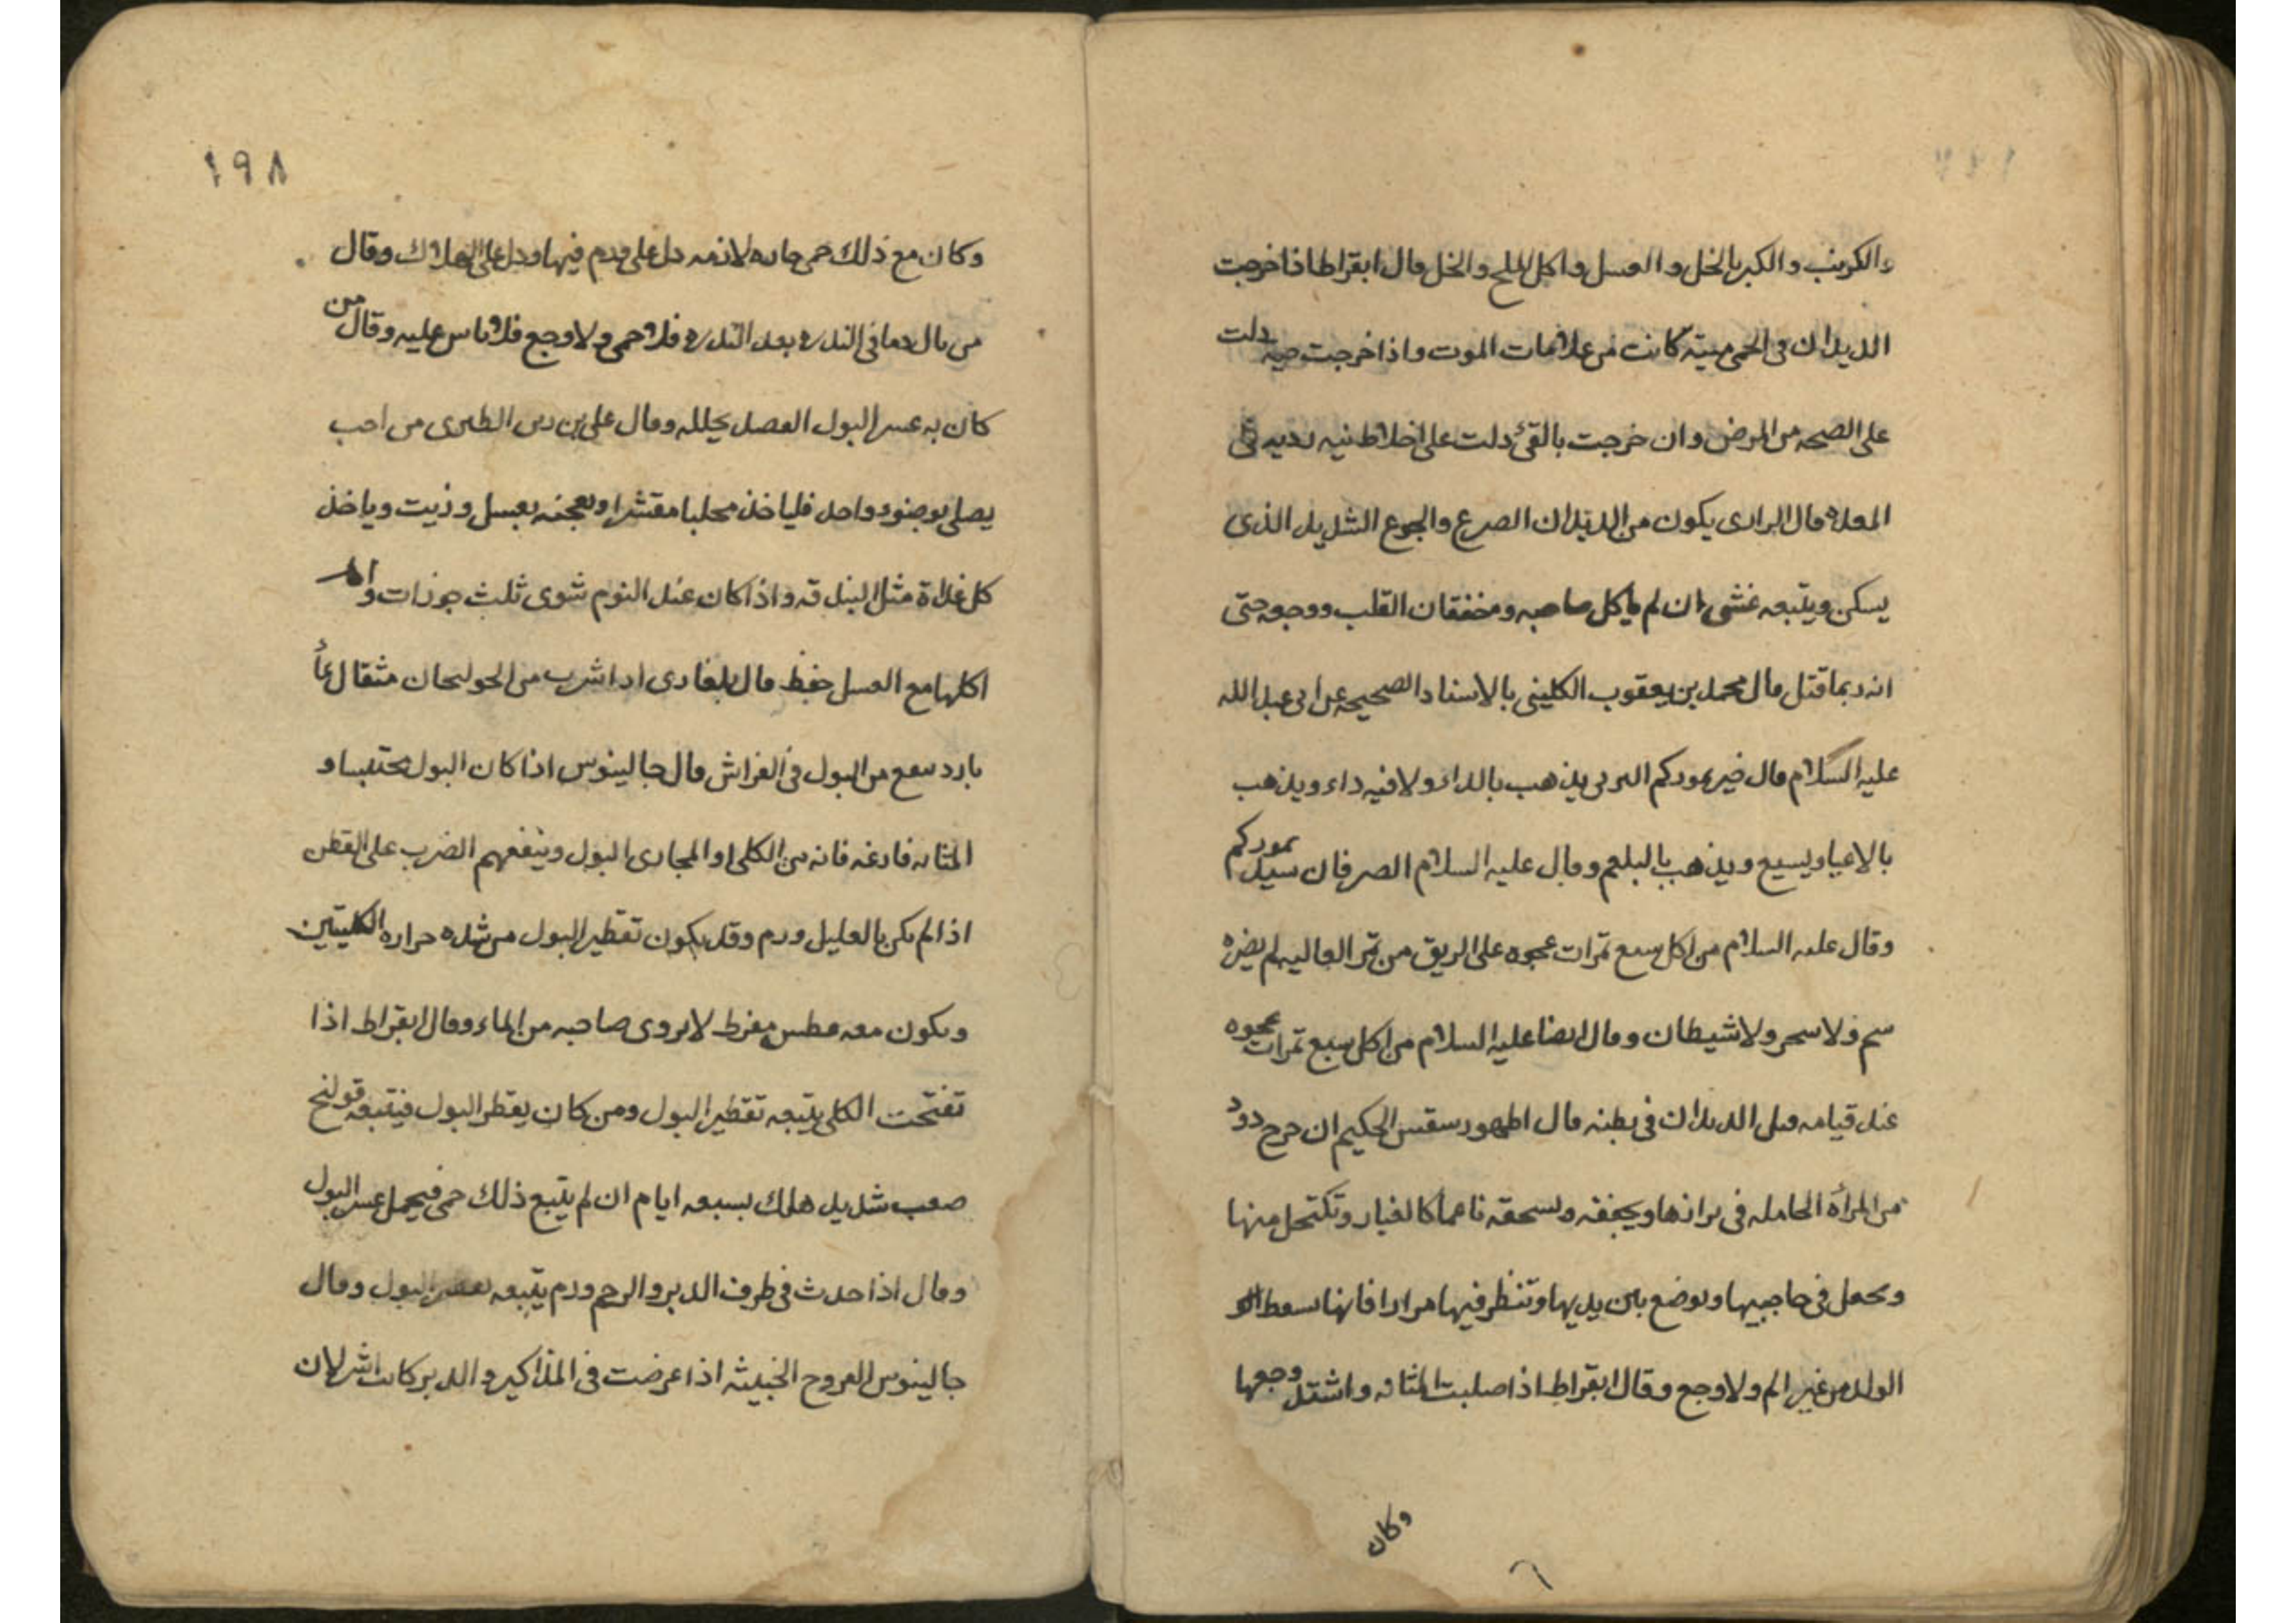 والكرنب والكبر بالخل والعسل واكل الملح والخل وقال ابقراط اذا خرجت
الديدان فى الحمى ميتة كانت من علامات الموت واذا خرجت حية دلت
على الصحه من المرض وان خرجت بالقئ دلت على اخلاط نيه رديه فى
المعده قال الرازى يكون من الديدان الصرع والجوع الشديد الذى
يسكن ويتبعه غشى ان لم ياكل صاحبه ومخفقان القلب ووجعه حتى
انه ربما قتل قال محمد بن يعقوب الكلينى بالاسناد الصحيحه عن ابى عبد الله
عليه السلام قال خير تموركم البرنى يذهب بالداء ولا فيه داء ويذهب
بالاعيا ويسبع ويذهب بالبلغم وقال عليه السلام الصرفان سيد تموركم
وقال عليه السلام من اكل سبع تمرات عجوه على الريق من تمر العاليه لم يضره
سم ولا سحر ولا شيطان وقال ايضا عليه السلام من اكل سبع تمرات عجوه
عند قيامه قتل الديدان فى بطنه قال اطهورسقس الحكيم ان خرج دود
من المرأة الحامله فى برازها ويجففه ويسحقه ناعماً كالغبار وتكتحل منها
ويجعل فى حاجبيها ويوضع بين يديها وتنظر فيها مرارا فانها تسقط
الولد من غير الم ولا وجع وقال ابقراط اذا صلبت المثانه واشتد وجعها
وكان
١٩٨
وكان مع ذلك حمى حاده لازمه دل على ورم فيها ودل على الهلاك وقال
من بال دما فى الندره بعد الندره فلا حمى ولا وجع فلا باس عليه وقال من
كان به عسر البول الفصد يحلله وقال على بن ربن الطبرى من احب
يصلى بوضوء واحد فلياخذ محلبا مقشرا ويعجنه بعسل وزيت وياخذ
كل غداة مثل البندقه واذا كان عند النوم شوى ثلث جوزات و
اكلها مع العسل حفظ قال اذا شرب من الخولنجان مثقال بماً
بارد نفع من البول فى الفراش قال جالينوس اذا كان البول محتبسا و
المثانه فارغه فانه من الكلى او المجارى البول وينفعهم الضرب على القطن
اذا لم يكن بالعليل ورم وقد يكون تقطير البول من شده حراره الكليتين
ويكون معه عطس مفرط لا يروى صاحبه من الماء وقال ابقراط اذا
تفتحت الكلى يتبعه تقطير البول ومن كان يقطر البول فيتبعه قولنج
صعب شديد هلك بسبعه ايام ان لم يتبع ذلك حمى فيحمل عسر البول
وقال اذا حدث فى طرف الدبر والرحم ورم يتبعه تقطير البول وقال
جالينوس القروح الخبيثه اذا عرضت فى المذاكير والدبر كانت اشر لان